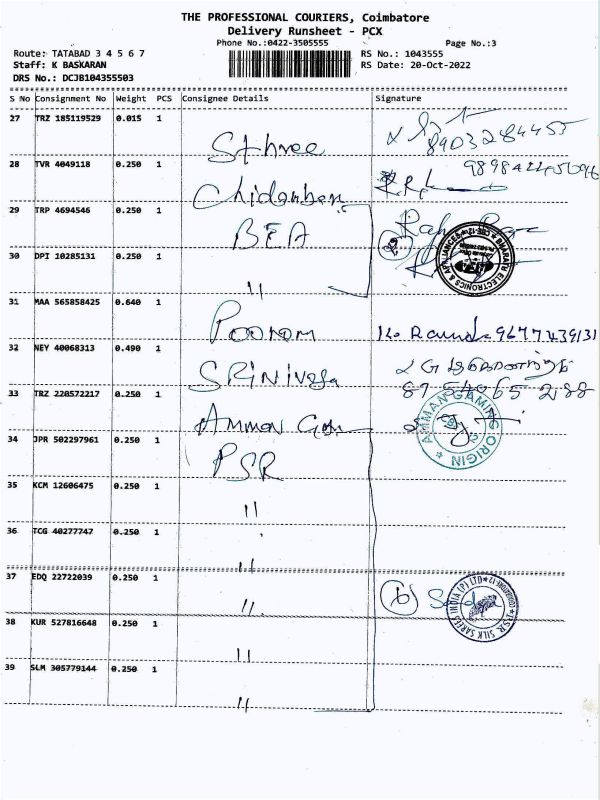 THE PROFESSIONAL COURIERS, Coimbatore
Delivery Runsheet - PCX
Phone No.:0422-3505555
Page No.:3
Route: TATABAD 3 4 5 6 7
RS No.: 1043555
Staff: K BASKARAN
RS Date: 20-Oct-2022
DRS No.: DCJB104355503
S No Consignment No Weight PCS Consignee Details Signature
27 TRZ 185119529 0.015 1 Sthree
8903284455
28 TVR 4049118 0.250 1 Chidamben
29 TRP 4694546 0.250 1 BEA
BHARATH ELECTRONICS & APPLIANCES
30 DPI 10285131 0.250 1 "
31 MAA 565858425 0.640 1 Poonam 9677439131
32 NEY 40068313 0.490 1 Srinivasa
33 TRZ 220572217 0.250 1 Amman Gam
AMMAN GAMING ORIGIN
34 JPR 502297961 0.250 1 PSR
35 KCM 12606475 0.250 1 "
36 TCG 40277747 0.250 1 "
37 EDQ 22722039 0.250 1 " 6
P.S.R. SILK SAREES INDIA (P) LTD
38 KUR 527816648 0.250 1 "
39 SLM 305779144 0.250 1 "